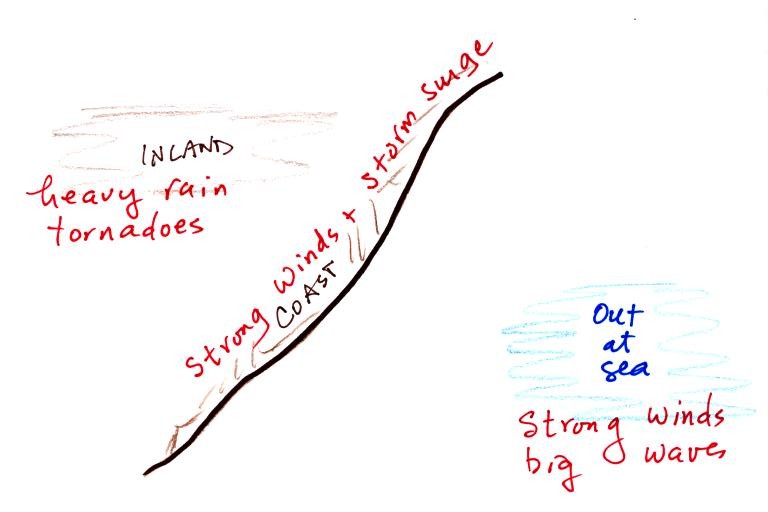 INLAND
heavy rain
tornadoes
Strong Winds + storm surge
COAST
Out
at
sea
Strong winds
big waves